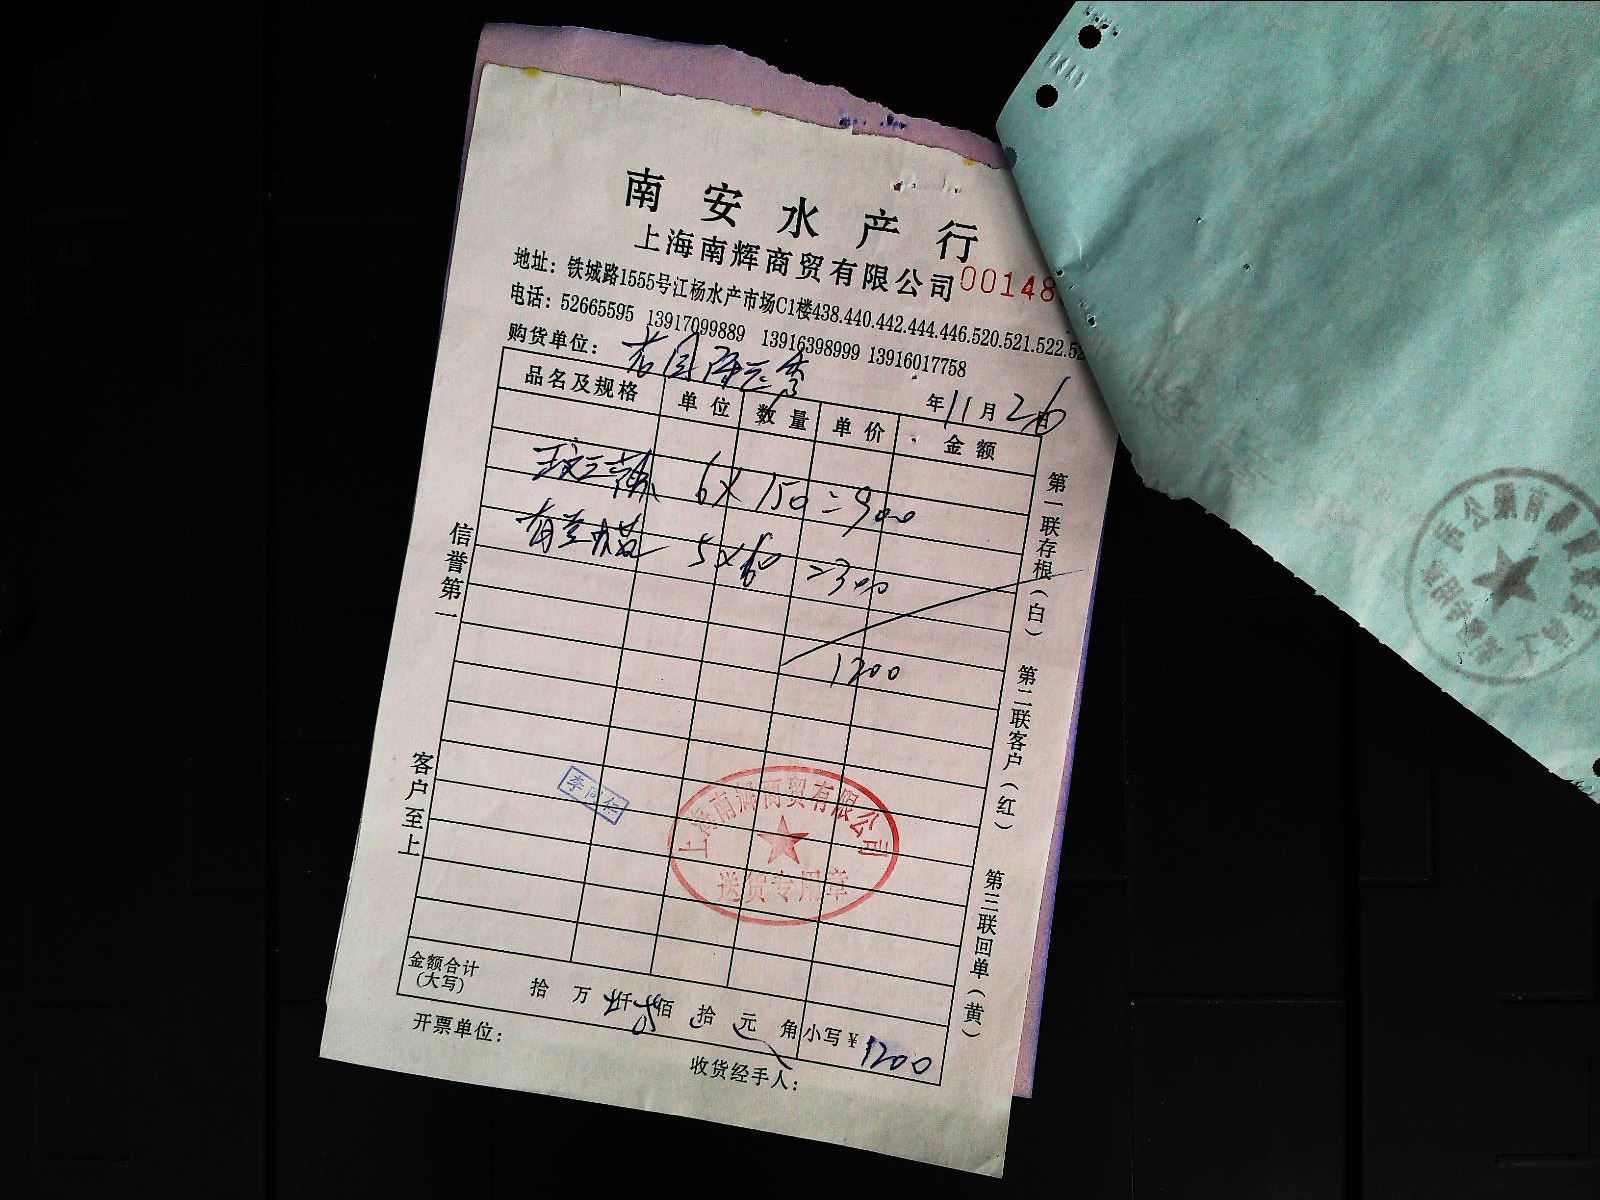 南安水产行
上海南辉商贸有限公司 00148
地址：铁城路1555号江杨水产市场C1楼438.440.442.444.446.520.521.522.52
电话：52665595 13917099889 13916398999 13916017758
购货单位：
年11月26日
品名及规格 单位 数量 单价 金额
6×150=900
5×60=300
1200
信誉第一
客户至上
第一联存根（白）
第二联客户（红）
第三联回单（黄）
李同仁
上海南辉商贸有限公司
送货专用章
金额合计（大写） 拾 万 仟 佰 拾 元 角 小写￥1200
开票单位：
收货经手人：